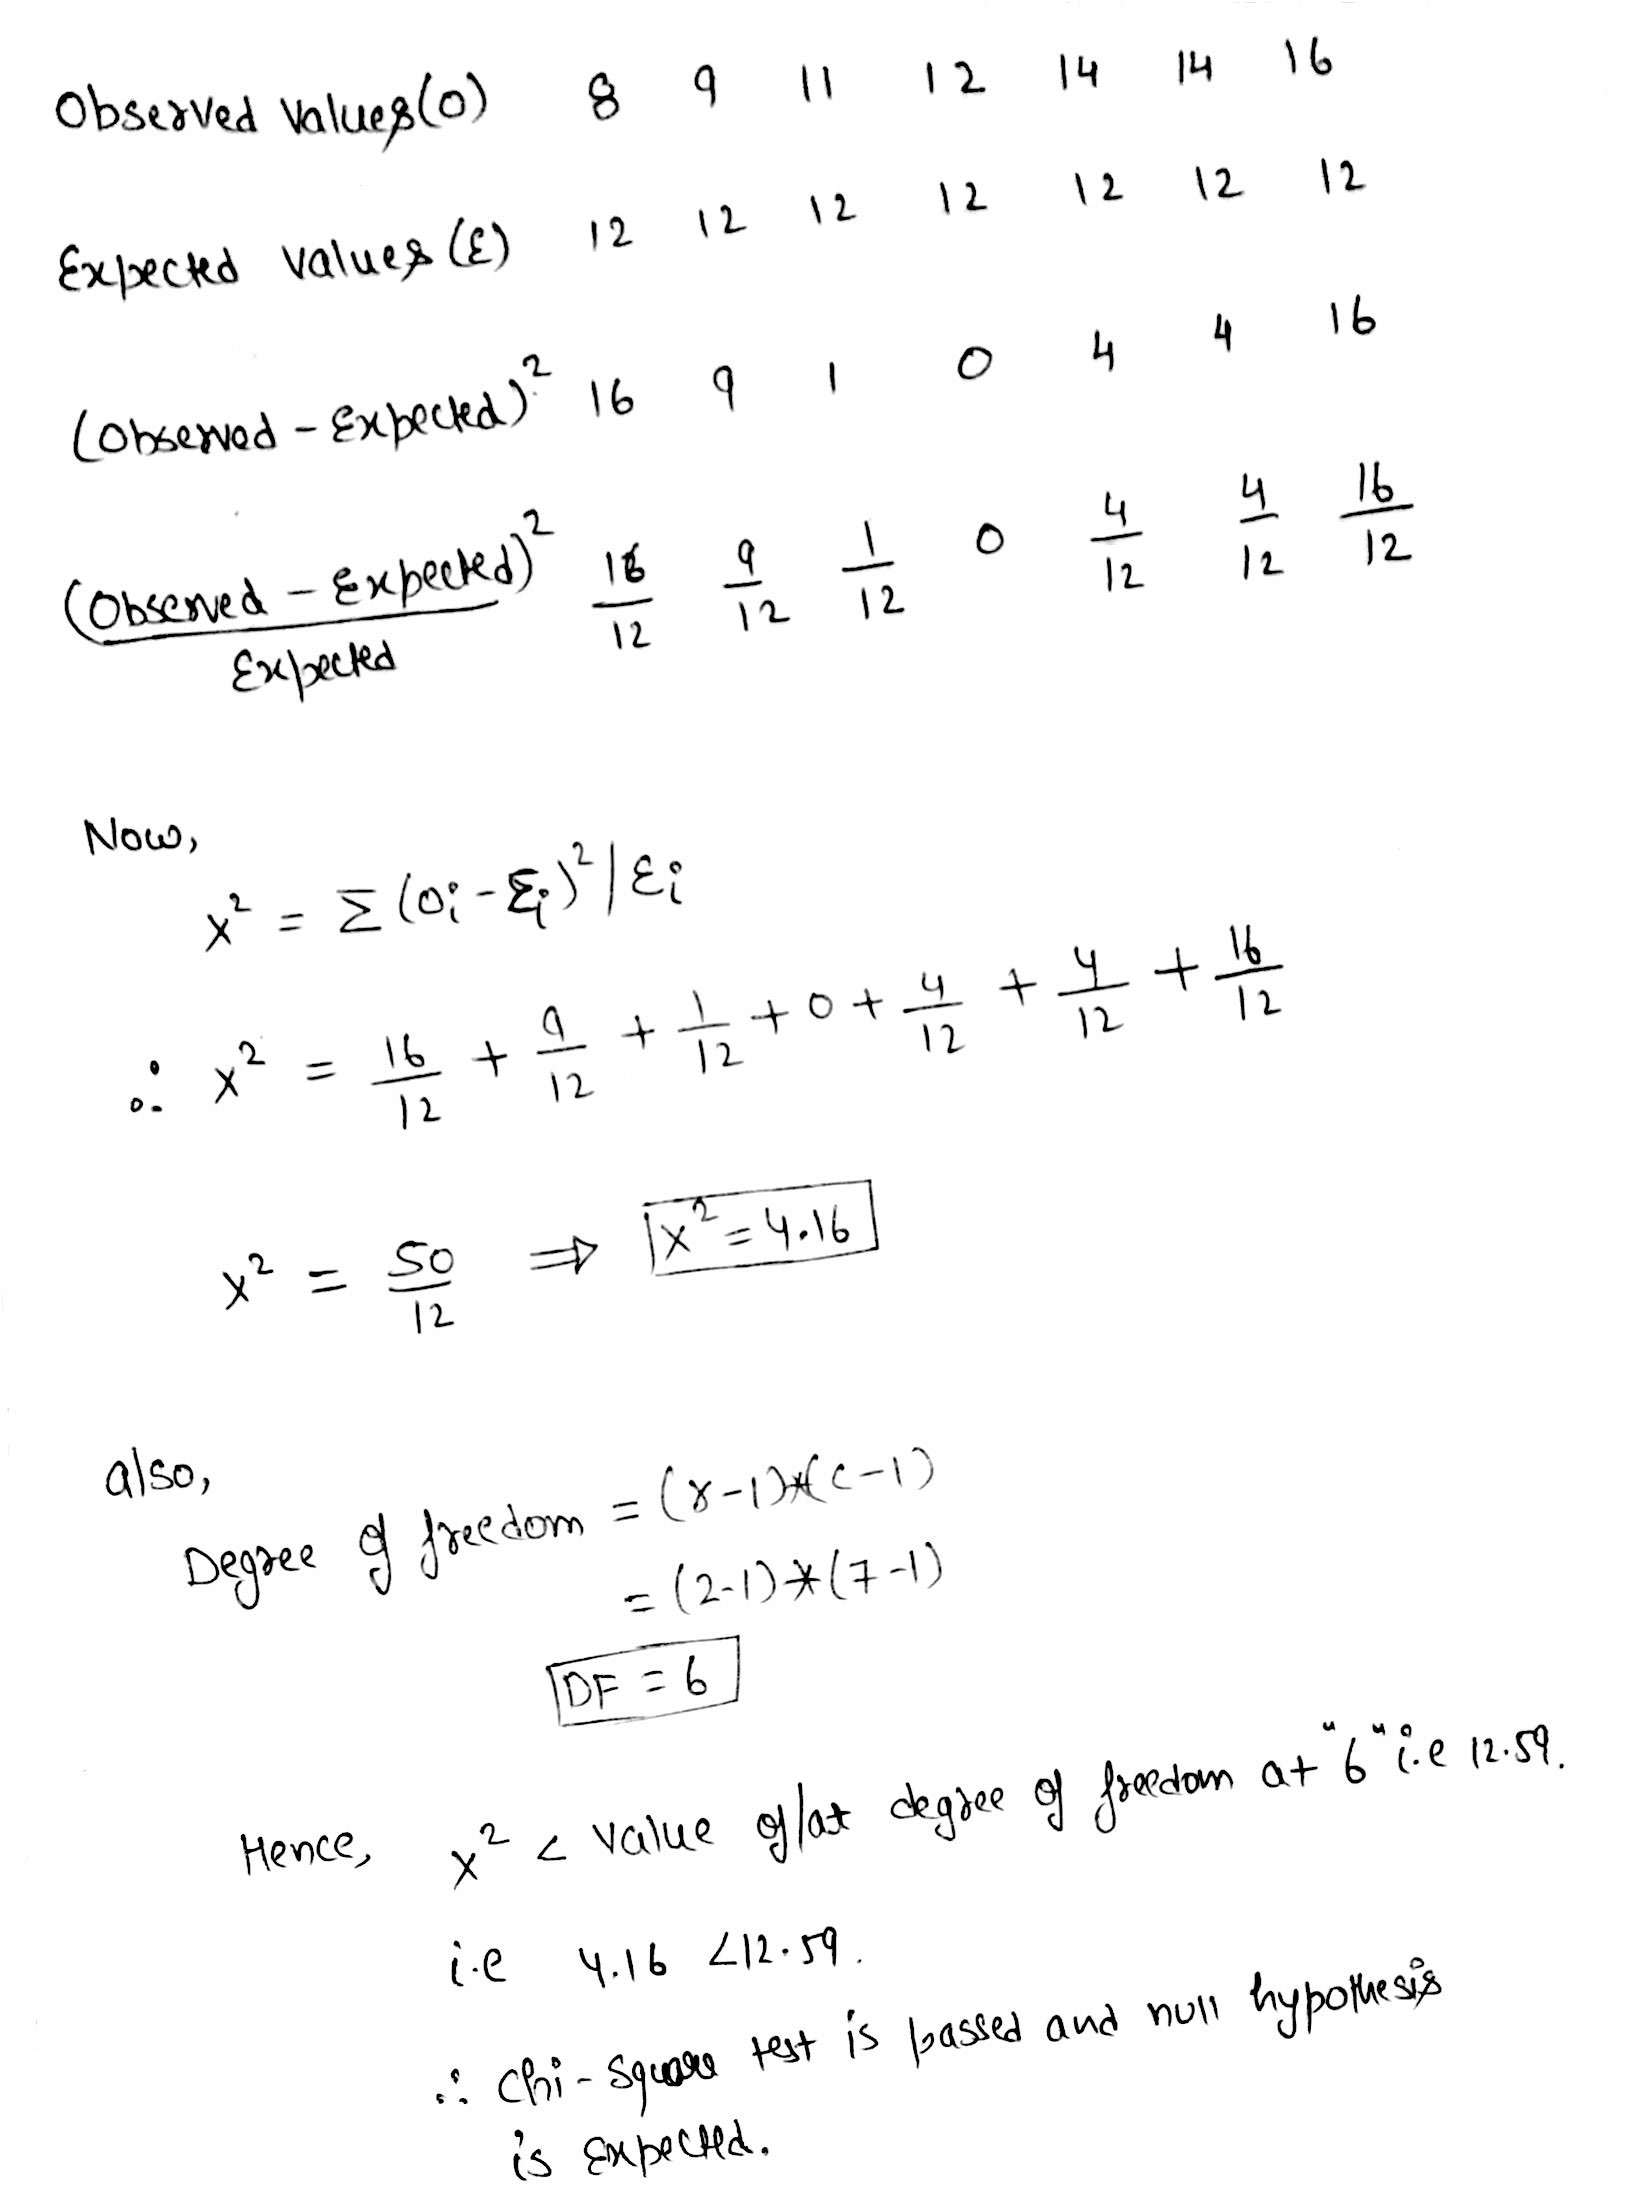 Observed Values(O) 8 9 11 12 14 14 16
Expected values (E) 12 12 12 12 12 12 12
(Observed - Expected)² 16 9 1 0 4 4 16
(Observed - Expected)² / Expected 16/12 9/12 1/12 0 4/12 4/12 16/12
Now,
x² = Σ (Oi - Ei)² | Ei
∴ x² = 16/12 + 9/12 + 1/12 + 0 + 4/12 + 4/12 + 16/12
x² = 50/12 ⇒ x² = 4.16
also,
Degree of freedom = (r-1)*(c-1)
= (2-1)*(7-1)
DF = 6
Hence, x² < value of/at degree of freedom at "6" i.e 12.59.
i.e 4.16 < 12.59.
∴ Chi-Square test is passed and null hypothesis
is Expected.